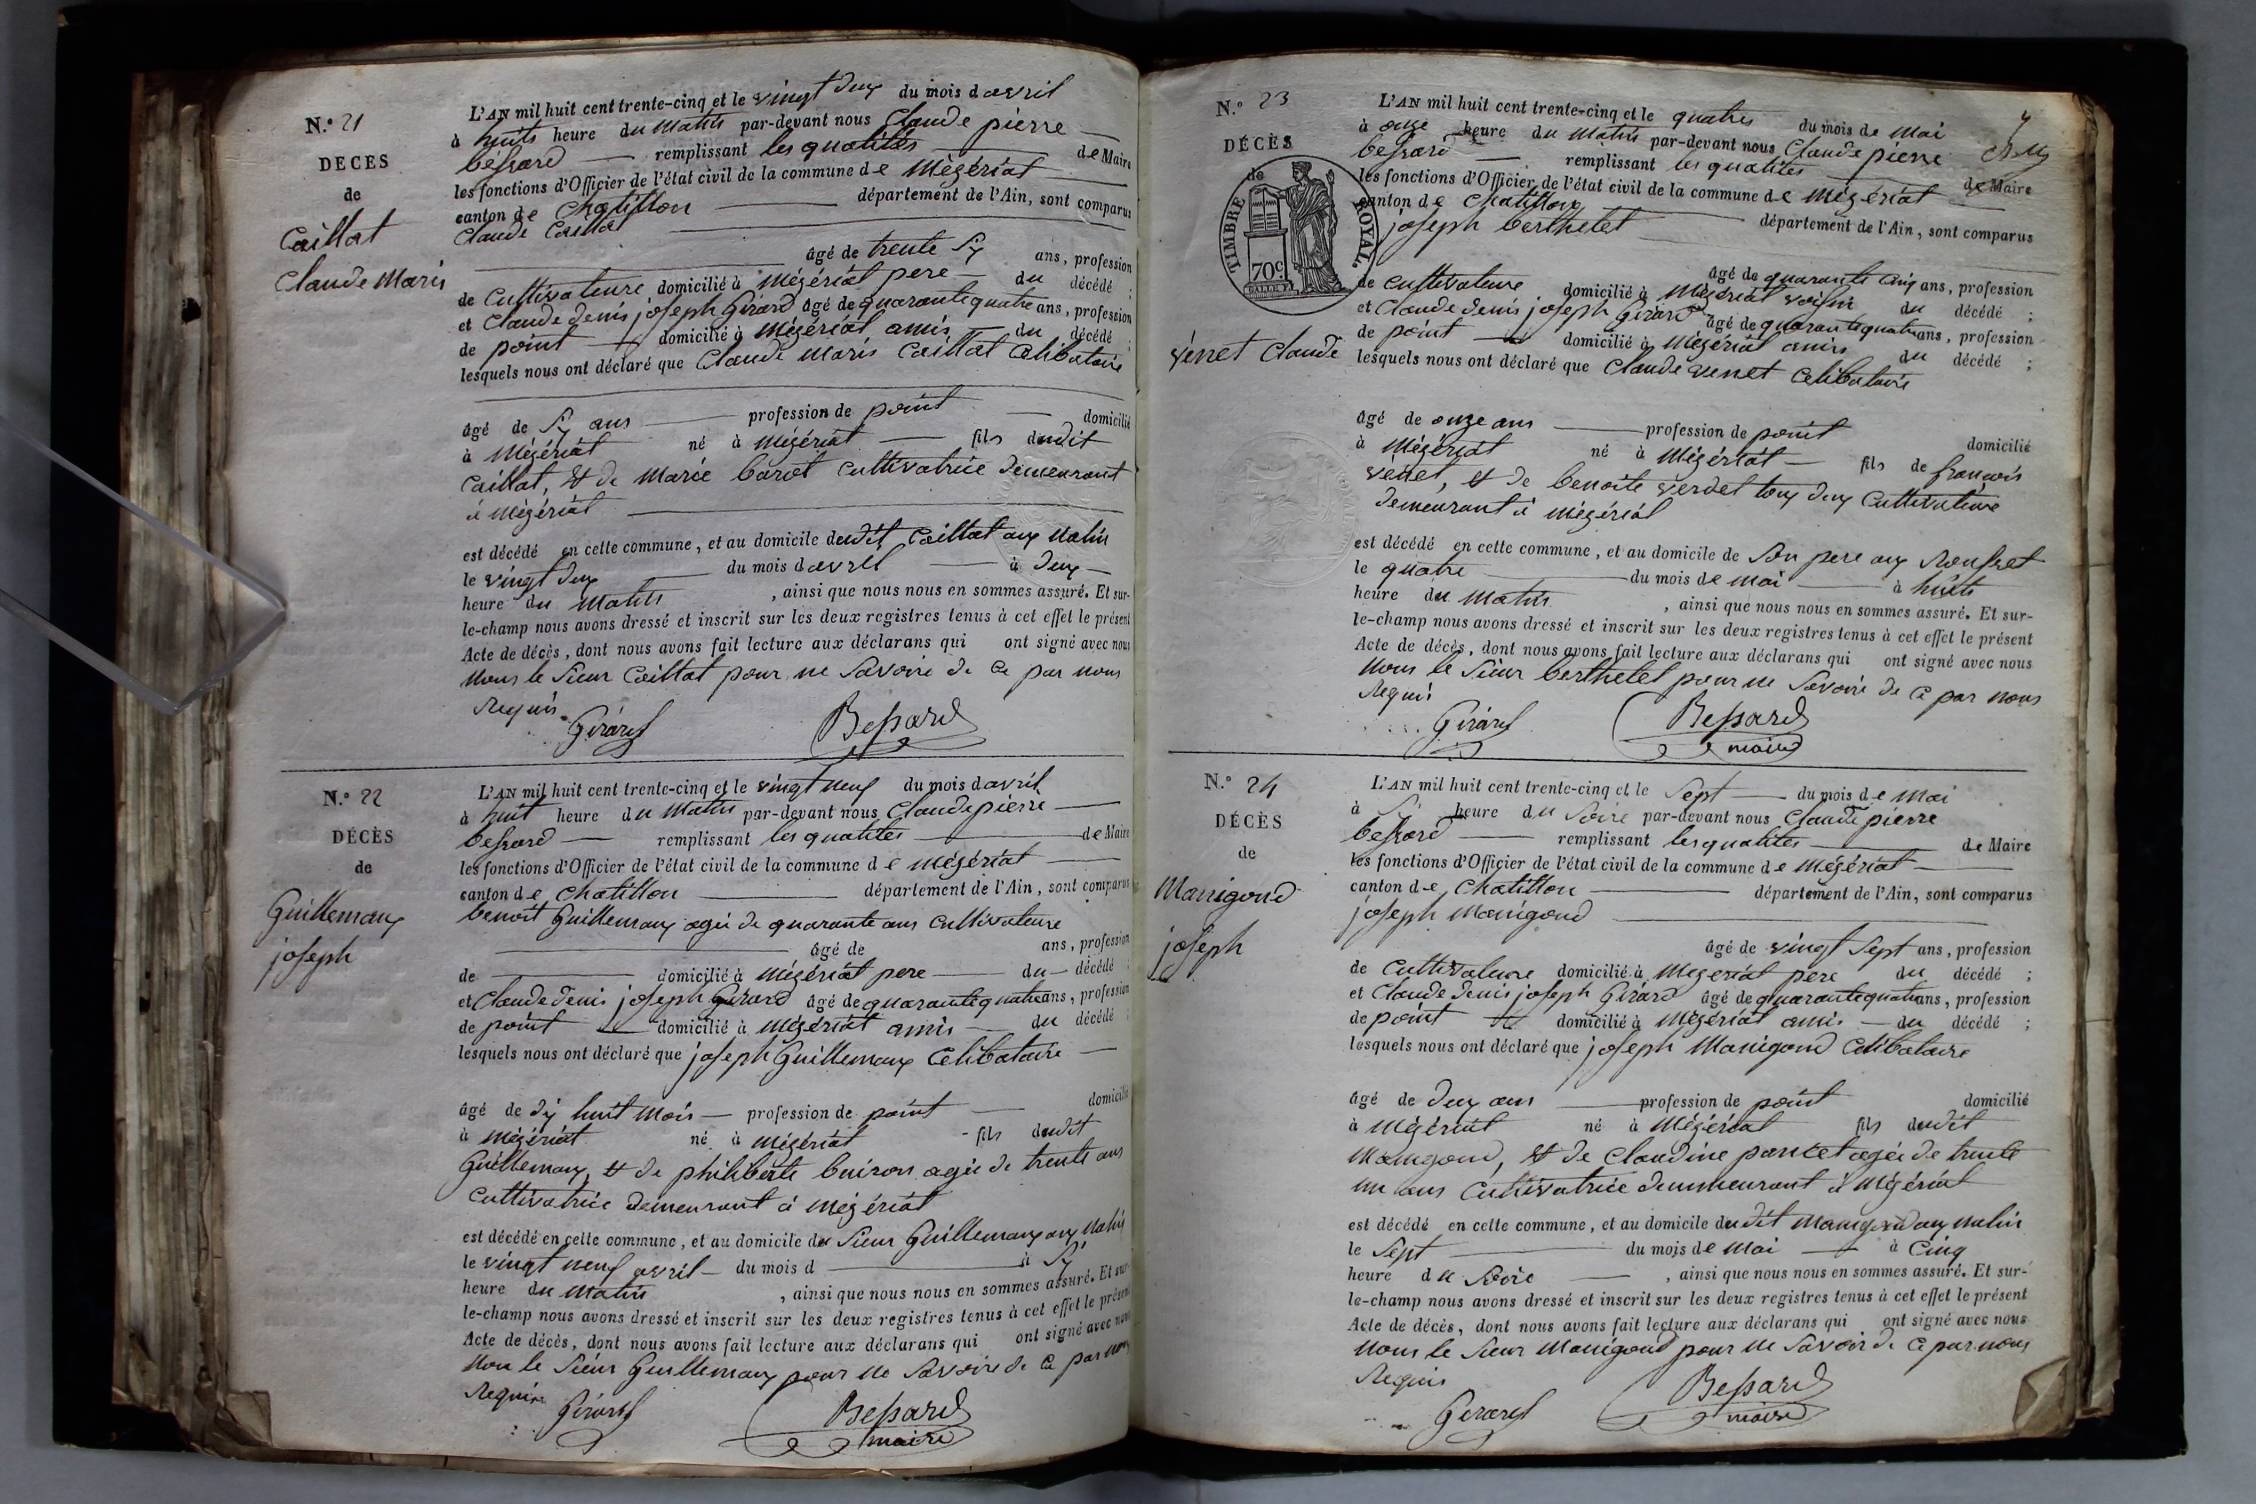 N.° 21
DÉCÈS
de
Caillat
Claude Marie
L'AN mil huit cent trente-cinq et le vingt deux du mois d avril
à huits heure du matin par-devant nous Claude pierre
bessard remplissant les qualités de Maire
les fonctions d'Officier de l'état civil de la commune de Mégériat
canton de Chatillon département de l'Ain, sont comparus
Claude Caillat
âgé de trente Six ans, profession
de Cultivateure domicilié à Mégériat pere du décédé ;
et Claude denis joseph Girard âgé de quarante quatre ans, profession
de point domicilié à Mégériat amis du décédé ;
lesquels nous ont déclaré que Claude Marie Caillat Celibataire
âgé de Six ans profession de point domicilié
à Mégériat né à Mégériat fils dudit
Caillat, et de Marie baret Cultivatrice demeurant
à Mégériat
est décédé en cette commune, et au domicile dudit Caillat aux
le vingt deux du mois d avril à deux
heure du Matin , ainsi que nous nous en sommes assuré. Et sur-
le-champ nous avons dressé et inscrit sur les deux registres tenus à cet effet le présent
Acte de décès, dont nous avons fait lecture aux déclarans qui ont signé avec nous
nous le Sieur Caillat pour ne Savoire de Ce par nous
Requis
Girard Bessard
N.° 22
DÉCÈS
de
Guillemaux
joseph
L'AN mil huit cent trente-cinq et le vingt neuf du mois d avril
à huit heure du Matin par-devant nous Claude pierre
bessard remplissant les qualités de Maire
les fonctions d'Officier de l'état civil de la commune de Mégériat
canton de Chatillon département de l'Ain, sont comparus
benoit Guillemaux agée de quarante ans Cultivateure
âgé de ans, profession
de domicilié à Mégériat pere du décédé ;
et Claude denis joseph Girard âgé de quarante quatre ans, profession
de point domicilié à Mégériat amis du décédé ;
lesquels nous ont déclaré que joseph Guillemaux Celibataire
âgé de dix huit Mois profession de point domicilié
à Mégériat né à Mégériat fils dudit
Guillemaux, et de philiberte buiron agée de trente ans
Cultivatrice demeurant à Mégériat
est décédé en cette commune, et au domicile du Sieur Guillemaux aux
le vingt neuf avril du mois d à Six
heure du Matin , ainsi que nous nous en sommes assuré. Et sur-
le-champ nous avons dressé et inscrit sur les deux registres tenus à cet effet le présent
Acte de décès, dont nous avons fait lecture aux déclarans qui ont signé avec nous
Non le Sieur Guillemaux pour ne Savoire de Ce par nous
Requis
Girard Bessard
maire
N.° 23
DÉCÈS
de
TIMBRE ROYAL.
70c.
venet Claude
L'AN mil huit cent trente-cinq et le quatres du mois de Mai
à onze heure du Matin par-devant nous Claude pierre
bessard remplissant les qualités de Maire
les fonctions d'Officier de l'état civil de la commune de Mégériat
canton de Chatillon département de l'Ain, sont comparus
joseph berthelet
âgé de quarante cinq ans, profession
de Cultivateure domicilié à Mégériat voisin du décédé ;
et Claude denis joseph Girard âgé de quarante quatre ans, profession
de point domicilié à Mégériat amis du décédé ;
lesquels nous ont déclaré que Claude venet Celibataire
âgé de onze ans profession de point domicilié
à Mégériat né à Mégériat fils de françois
venet, et de benoite verdet toux deux Cultivateure
demeurant à Mégériat
est décédé en cette commune, et au domicile de Son pere aux
le quatre du mois de Mai à huits
heure du Matin , ainsi que nous nous en sommes assuré. Et sur-
le-champ nous avons dressé et inscrit sur les deux registres tenus à cet effet le présent
Acte de décès, dont nous avons fait lecture aux déclarans qui ont signé avec nous
nous le Sieur berthelet pour ne Savoire de Ce par nous
Requis
Girard Bessard
maire
N.° 24
DÉCÈS
de
Manigoud
joseph
L'AN mil huit cent trente-cinq et le Sept du mois de Mai
à Six heure du Soire par-devant nous Claude pierre
bessard remplissant les qualités de Maire
les fonctions d'Officier de l'état civil de la commune de Mégériat
canton de Chatillon département de l'Ain, sont comparus
joseph Manigoud
âgé de vingt Sept ans, profession
de Cultivateure domicilié à Mégériat pere du décédé ;
et Claude denis joseph Girard âgé de quarante quatre ans, profession
de point domicilié à Mégériat amis du décédé ;
lesquels nous ont déclaré que joseph Manigoud Celibataire
âgé de deux ans profession de point domicilié
à Mégériat né à Mégériat fils dudit
Manigoud, et de Claudine poncet agée de trente
un ans Cultivatrice demmeurant à Mégériat
est décédé en cette commune, et au domicile dudit Manigoud aux
le Sept du mois de Mai à Cinq
heure du Soire , ainsi que nous nous en sommes assuré. Et sur-
le-champ nous avons dressé et inscrit sur les deux registres tenus à cet effet le présent
Acte de décès, dont nous avons fait lecture aux déclarans qui ont signé avec nous
nous le Sieur Manigoud pour ne Savoir de Ce par nous
Requis
Girard Bessard
maire